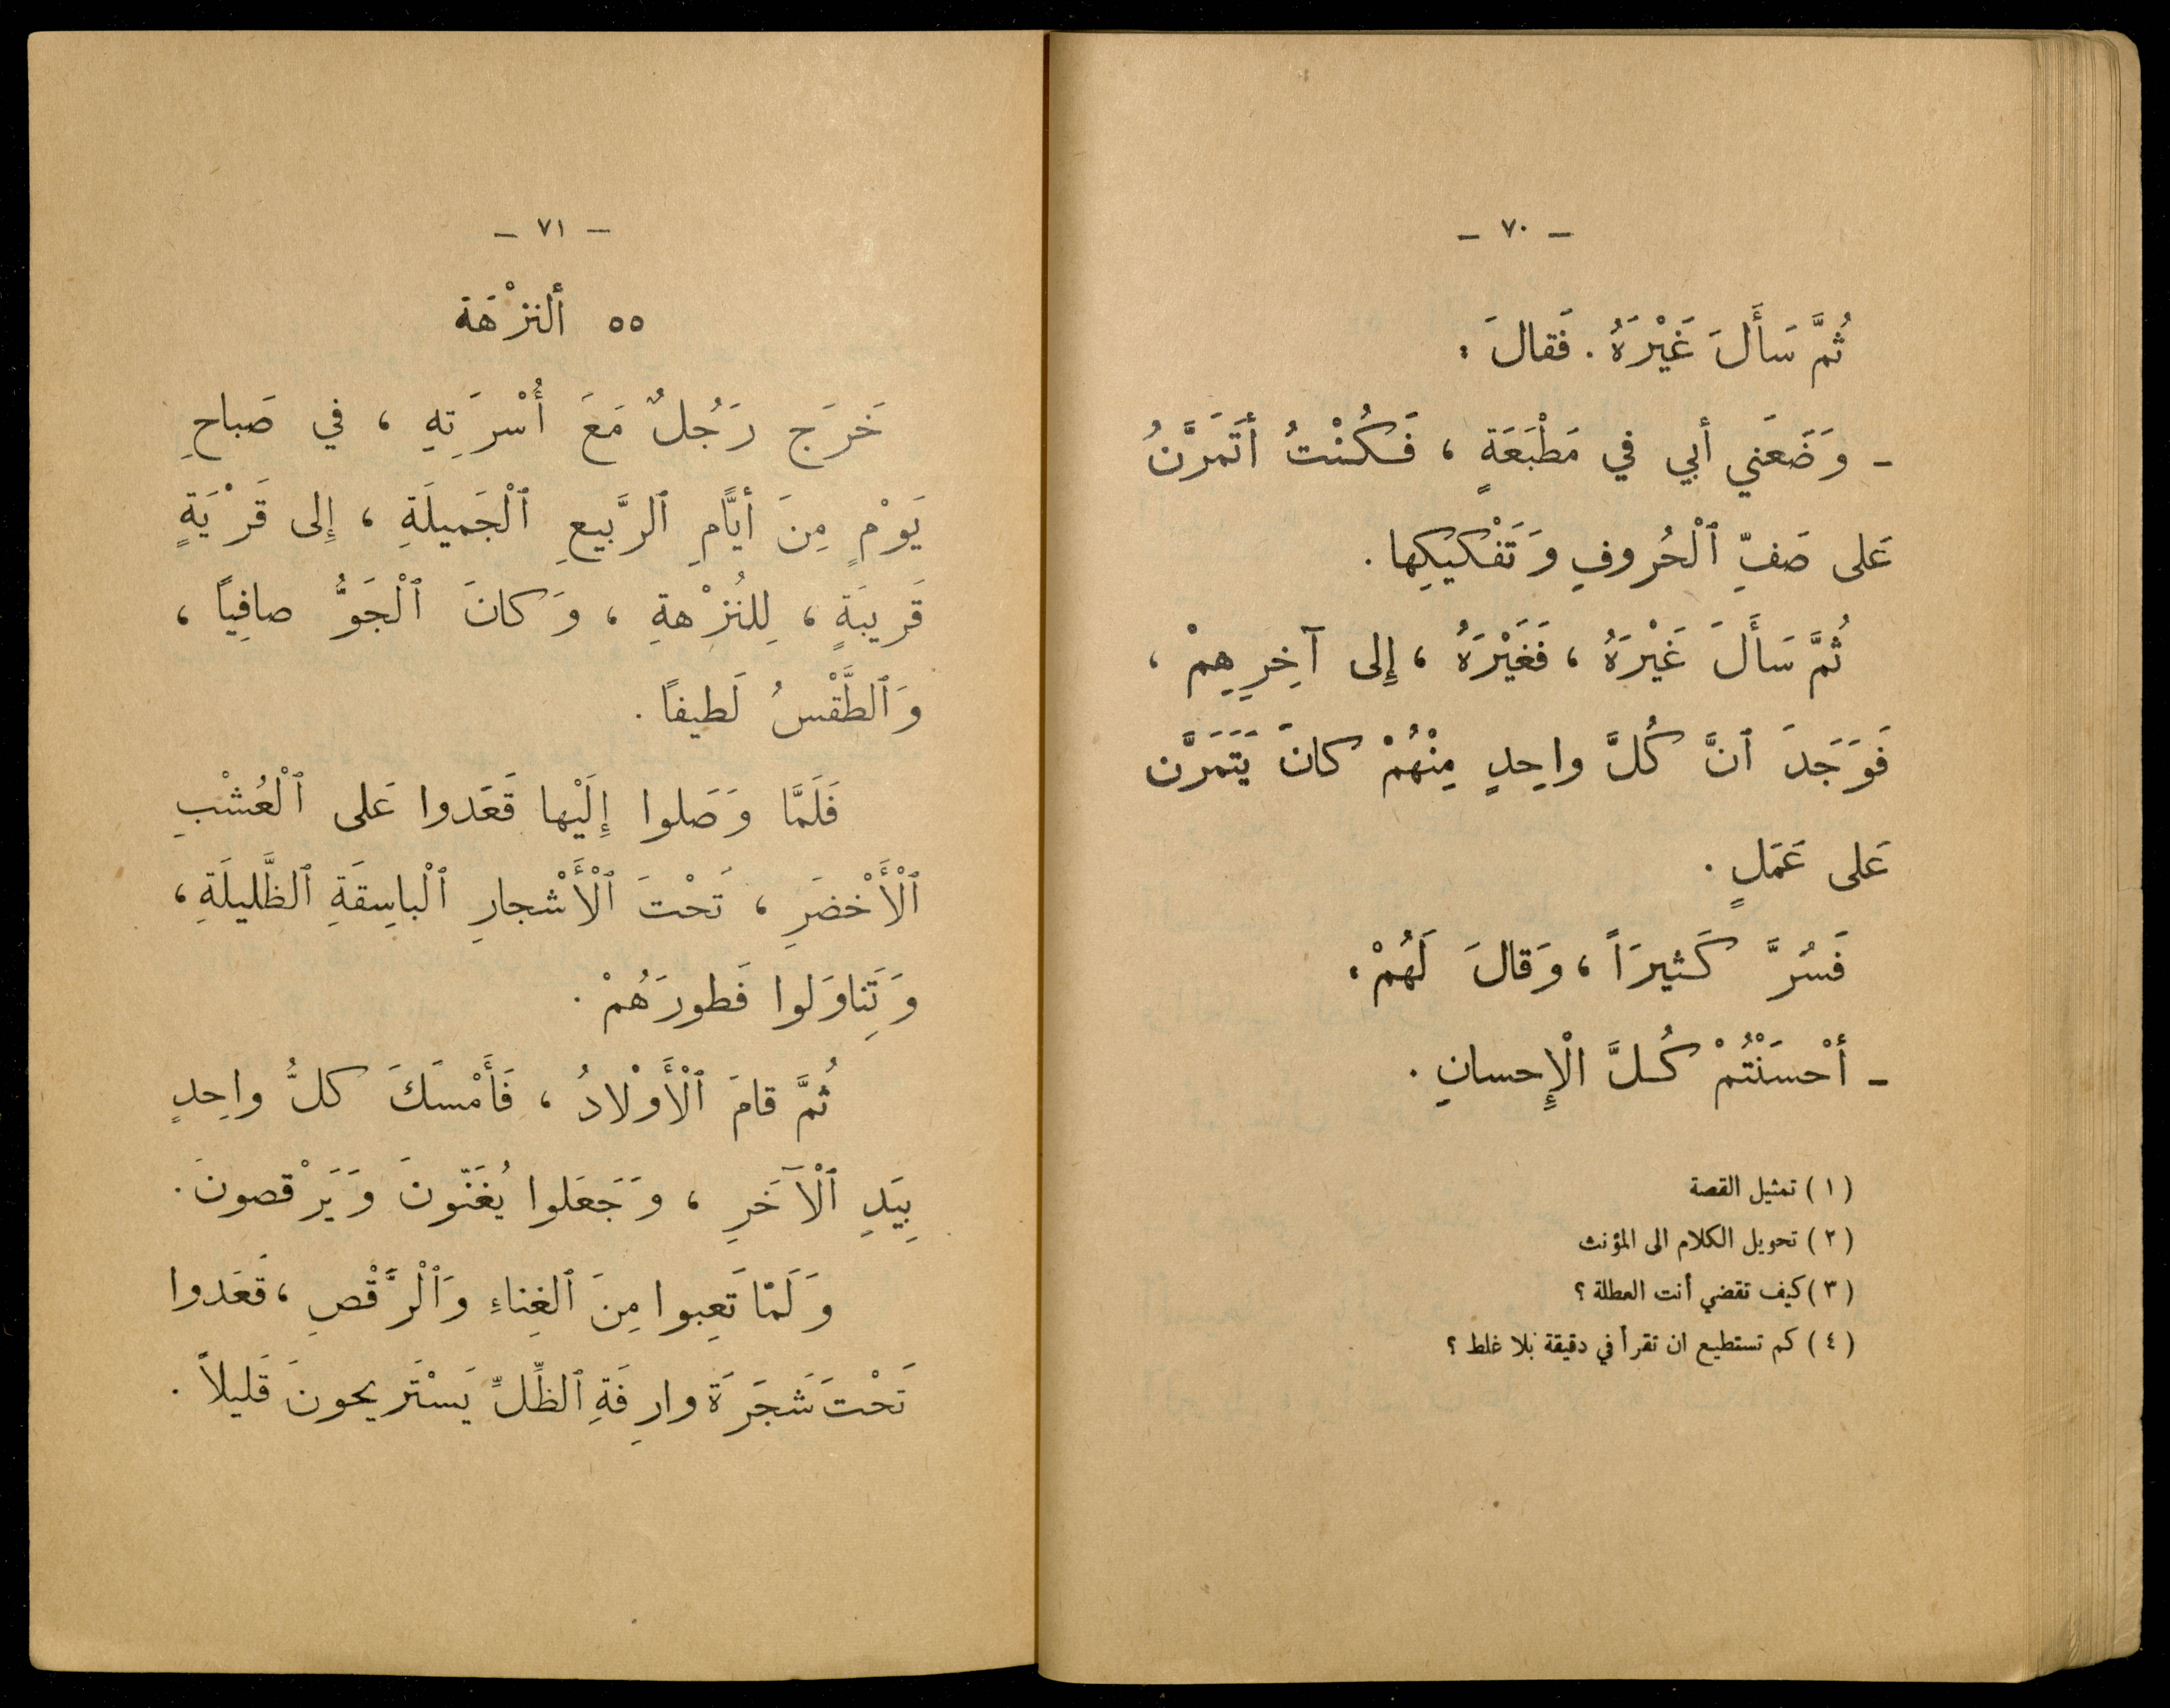 – ٧٠ –
ثُمَّ سَأَلَ غَيْرَهُ . فَقالَ :
– وَضَعَني أبي في مَطْبَعَةٍ ، فَكُنْتُ أَتَمَرَّنُ
عَلى صَفِّ ٱلْحُروفِ وَتَفْكيكِها .
ثُمَّ سَأَلَ غَيْرَهُ ، فَغَيْرَهُ ، إِلى آخِرِهِمْ ،
فَوَجَدَ ٱنَّ كُلَّ واحِدٍ مِنْهُمْ كانَ يَتَمَرَّن
عَلى عَمَلٍ .
فَسُرَّ كَثيرَاً ، وَقالَ لَهُمْ :
– أحْسَنْتُمْ كُلَّ الْإِحسانِ .
( ١ ) تمثيل القصة
( ٢ ) تحويل الكلام الى المؤنث
( ٣ ) كيف تقضي أنت العطلة ؟
( ٤ ) كم تستطيع ان تقرأ في دقيقة بلا غلط ؟
– ٧١ –
٥٥ ألنزْهَة
خَرَجَ رَجُلٌ مَعَ أُسْرَتِهِ ، في صَباحِ
يَوْمٍ مِنَ أيَّامِ ٱلرَّبيعِ ٱلْجَميلَةِ ، إِلى قَرْيَةٍ
قَريبَةٍ ، لِلنُزْهةِ ، وَكانَ ٱلْجَوُّ صافِياً ،
وَٱلطَّقْسُ لَطيفاً .
فَلَمَّا وَصَلوا إِلَيْها قَعَدوا عَلى ٱلْعُشْبِ
ٱلْأَخْضَرِ ، تَحْتَ ٱلْأَشْجارِ ٱلْباسِقَةِ ٱلظَّليلَةِ ،
وَتَناوَلوا فَطورَهُمْ .
ثُمَّ قامَ ٱلْأَوْلادُ ، فَأَمْسَكَ كلُّ واحِدٍ
بِيَدِ ٱلْآخَرِ ، وَجَعَلوا يُغَنّونَ وَيَرْقصونَ .
وَلَمّا تَعِبوا مِنَ ٱلغِناءِ وَٱلْرَّقْصِ ، قَعَدوا
تَحْتَ شَجَرَة وارِفَةِ ٱلظِّلِّ يَسْتَريحونَ قَليلاً .